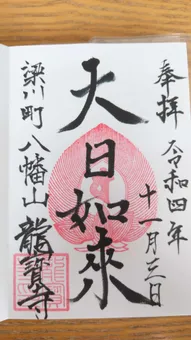 奉拝 令和四年
十一月三日
大日如來
梁川町 八幡山 龍寶寺